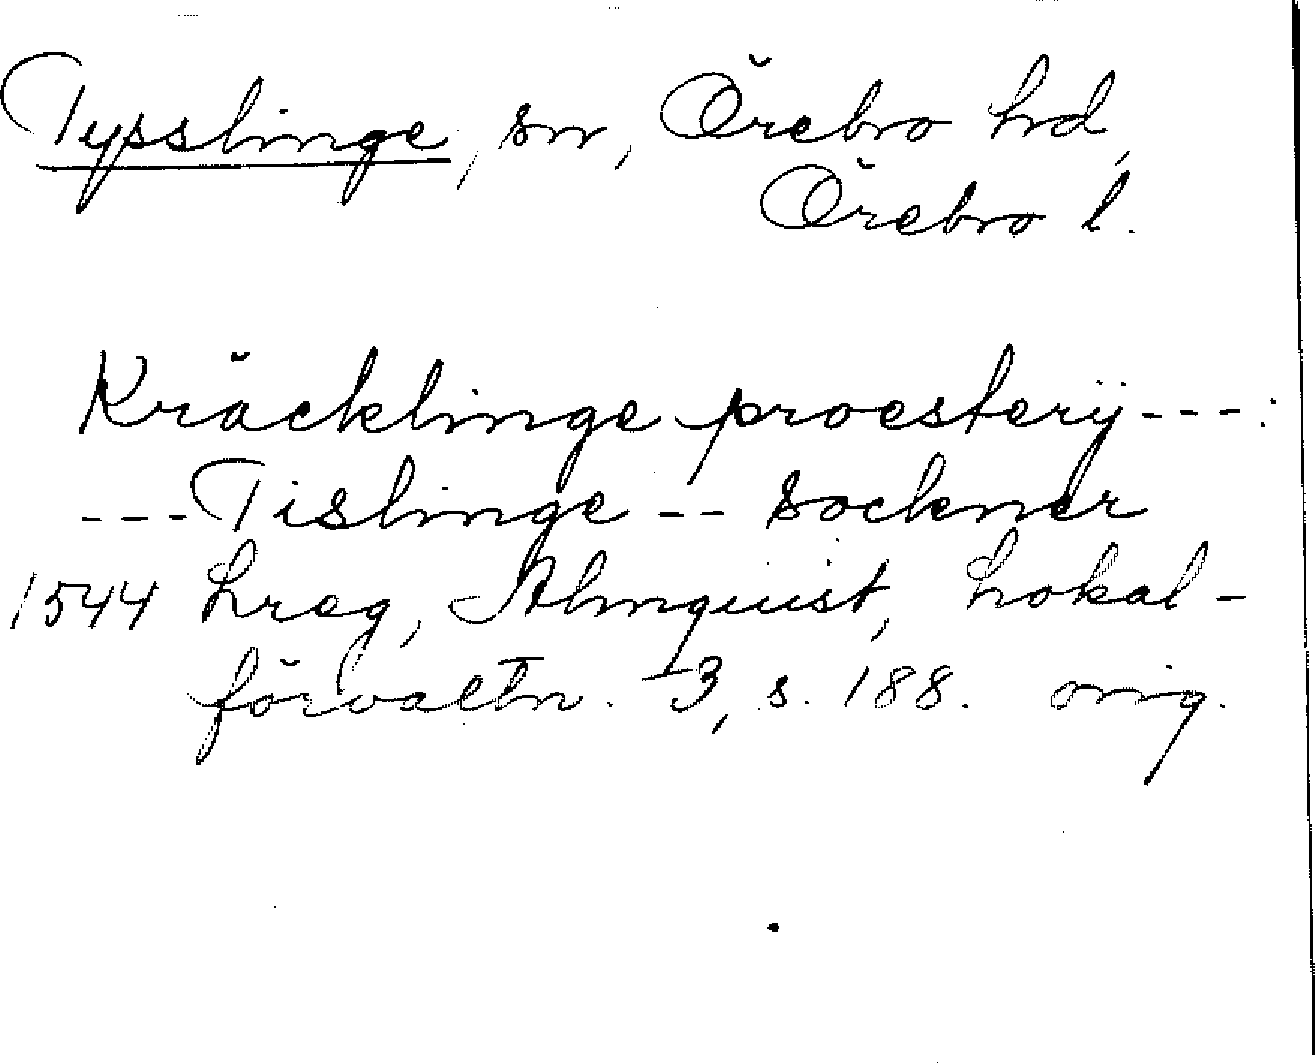 Tysslinge, sn, Örebro hd,
Örebro l.
Kräcklinge proesterij---:
---Tislinge -- sockner
1544 Lreg, Almquist, Lokal-
förvaltn. I3, s. 188. orig.